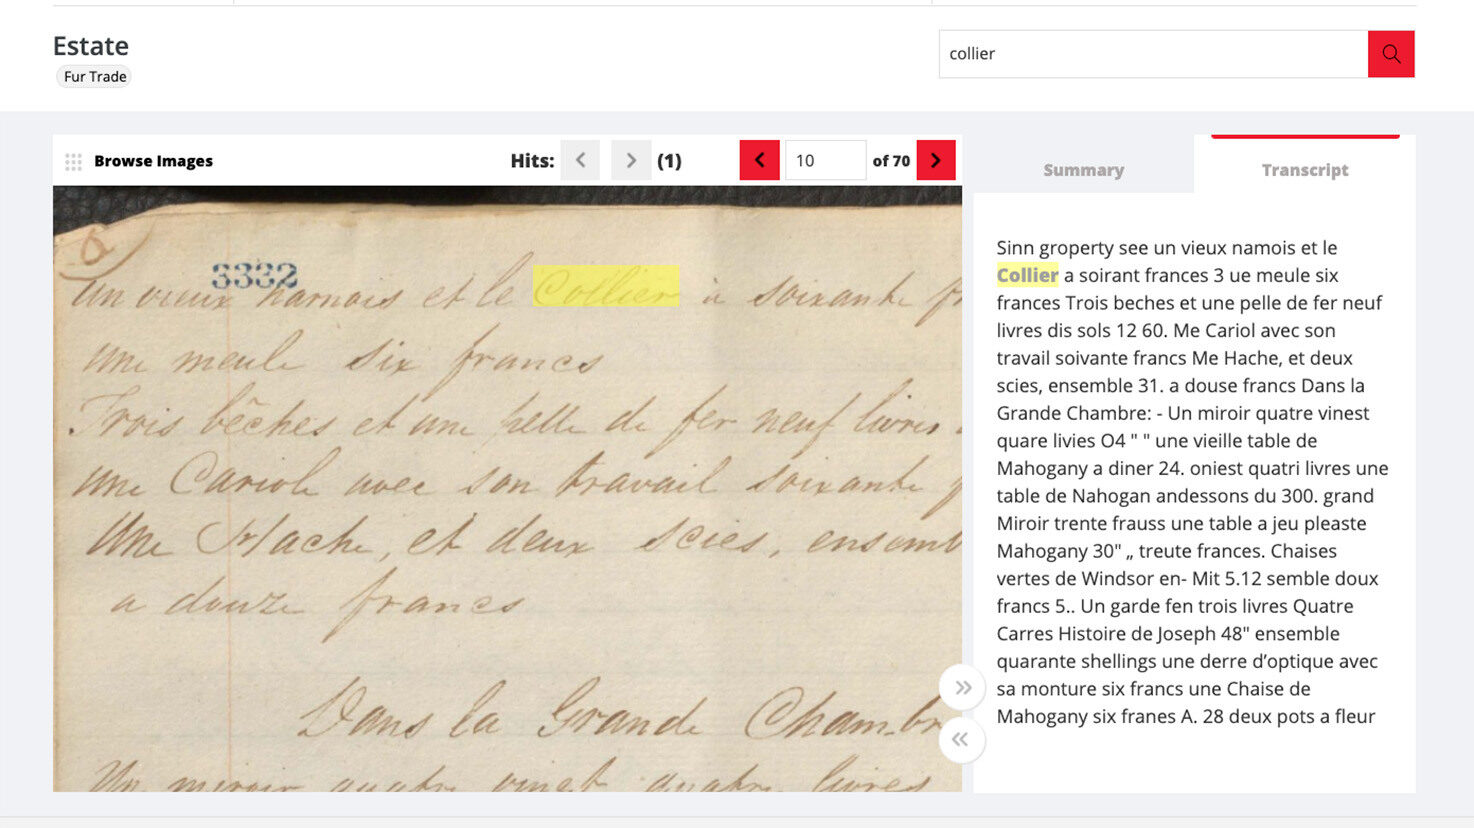 Estate
Fur Trade
collier
Browse Images
Hits:
(1)
10
of 70
Summary
Transcript
3332
un vieux harnais et le Collier à soixante fr
une meule six francs
Trois bêches et une pelle de fer neuf livres
une Cariole avec son travail soixante f
Une Hache, et deux scies, ensemb
a douze francs
Dans la Grande Chambr
Un miroir quatre vingt quatre livres
Sinn groperty see un vieux namois et le
Collier a soirant frances 3 ue meule six
frances Trois beches et une pelle de fer neuf
livres dis sols 12 60. Me Cariol avec son
travail soivante francs Me Hache, et deux
scies, ensemble 31. a douse francs Dans la
Grande Chambre: - Un miroir quatre vinest
quare livies O4 " " une vieille table de
Mahogany a diner 24. oniest quatri livres une
table de Nahogan andessons du 300. grand
Miroir trente frauss une table a jeu pleaste
Mahogany 30" „ treute frances. Chaises
vertes de Windsor en- Mit 5.12 semble doux
francs 5.. Un garde fen trois livres Quatre
Carres Histoire de Joseph 48" ensemble
quarante shellings une derre d’optique avec
sa monture six francs une Chaise de
Mahogany six franes A. 28 deux pots a fleur